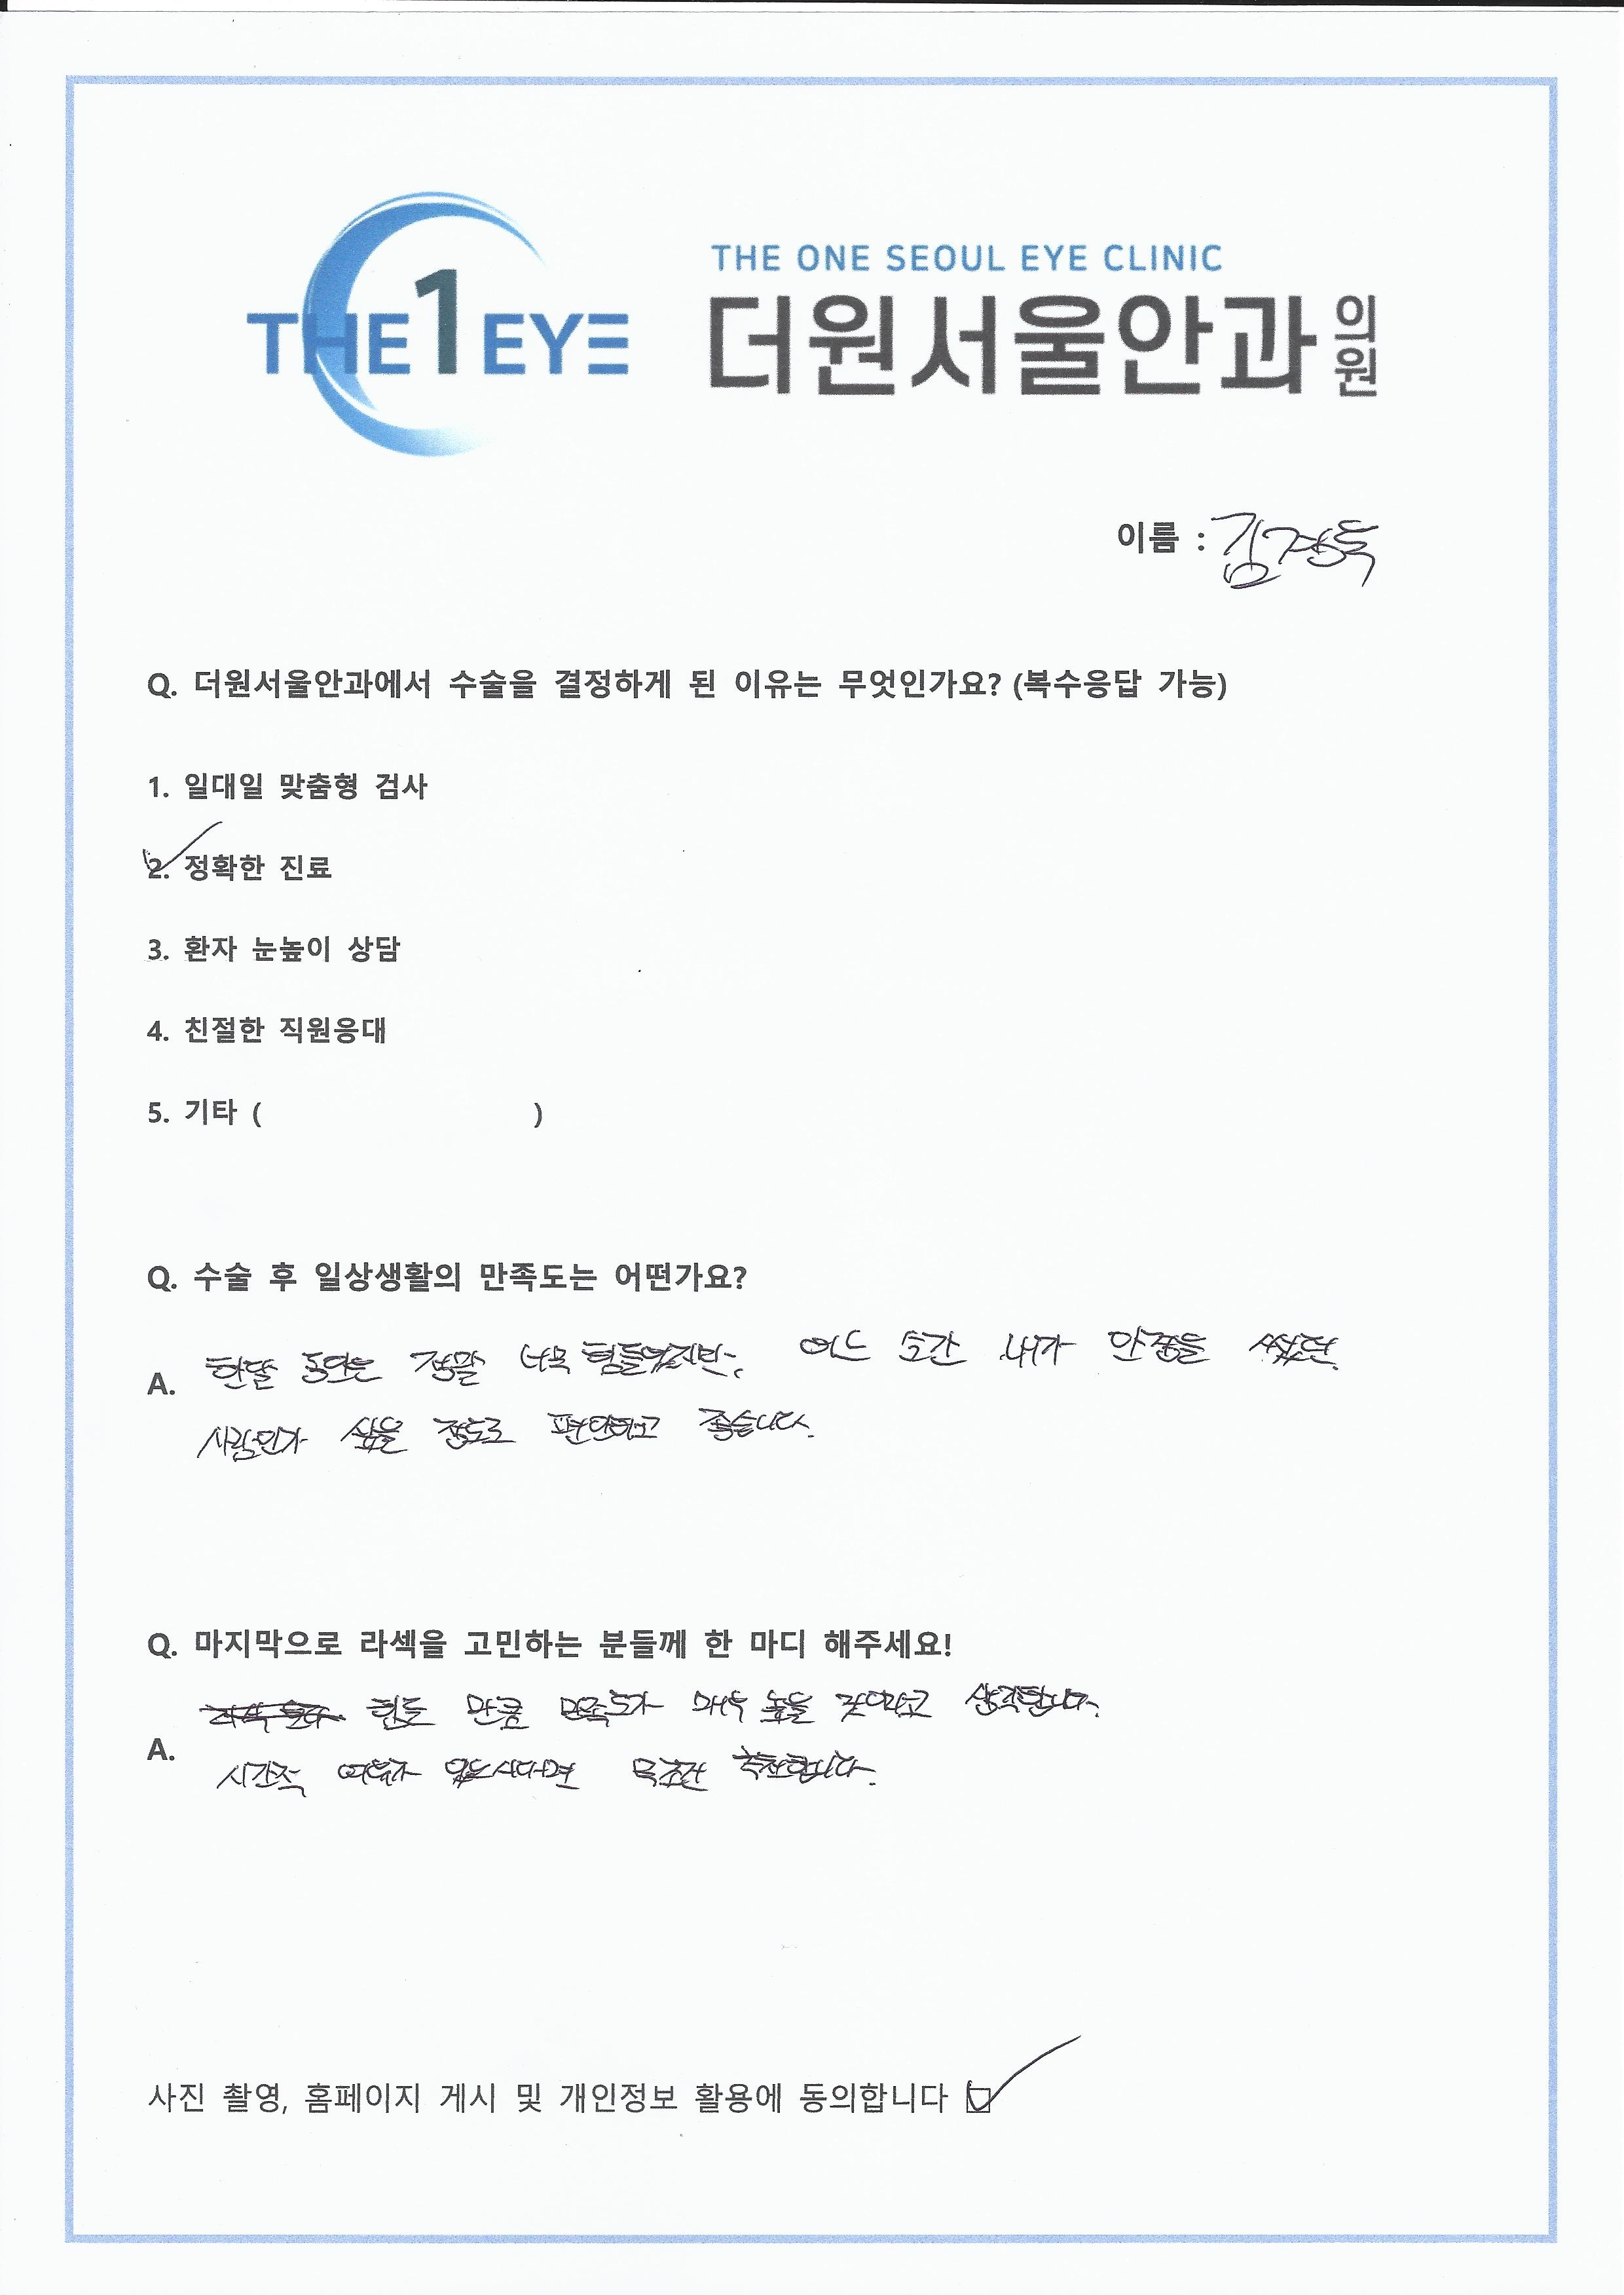 THE 1 EYE
THE ONE SEOUL EYE CLINIC
더원서울안과의원
이름 : 김경득
Q. 더원서울안과에서 수술을 결정하게 된 이유는 무엇인가요? (복수응답 가능)
1. 일대일 맞춤형 검사
2. 정확한 진료
3. 환자 눈높이 상담
4. 친절한 직원응대
5. 기타 ( )
Q. 수술 후 일상생활의 만족도는 어떤가요?
A. 한달 동안은 정말 너무 힘들었지만, 어느 순간 내가 안경을 썼던
사람인가 싶을 정도로 편안하고 좋습니다.
Q. 마지막으로 라섹을 고민하는 분들께 한 마디 해주세요!
A. 힘든 만큼 만족도가 매우 높을 것이라고 생각합니다.
시간적 여유가 있으시다면 무조건 추천합니다.
사진 촬영, 홈페이지 게시 및 개인정보 활용에 동의합니다